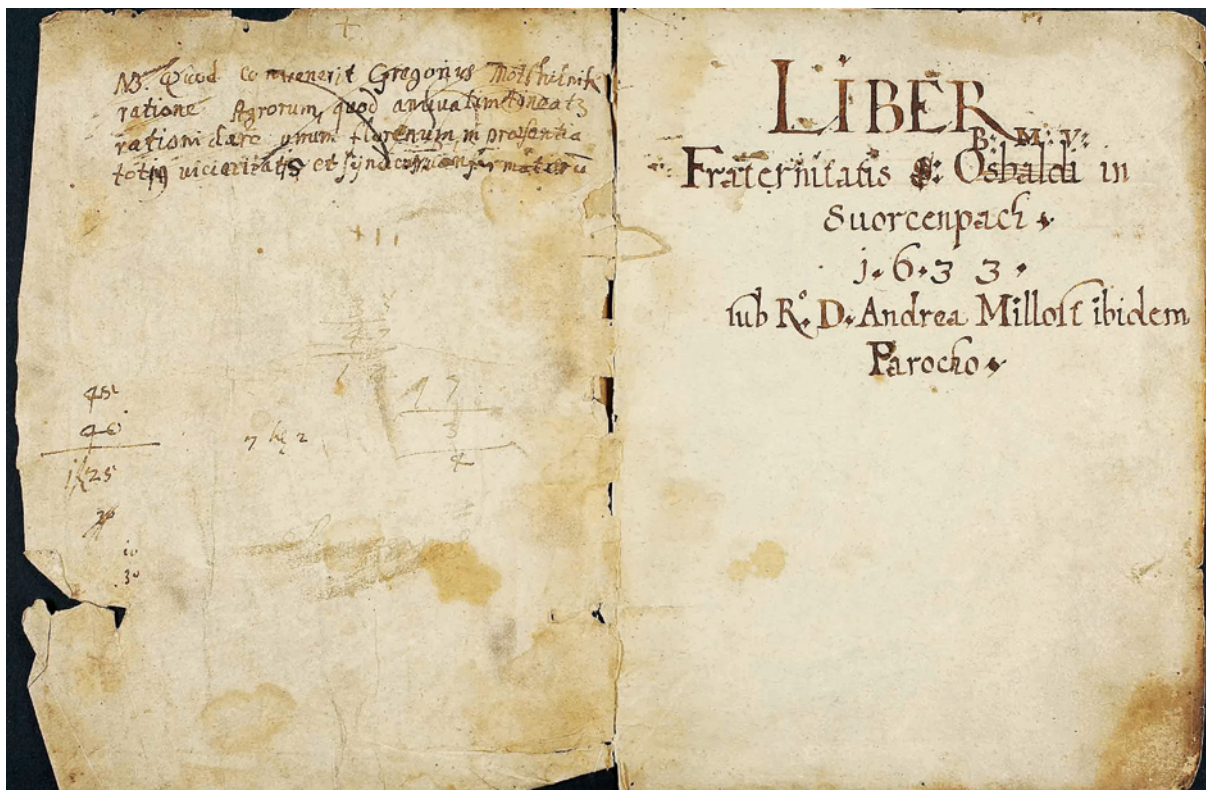 NB. Quod convenerit Gregorius
ratione Agrorum, quod annuatim
rationi dare unum florenum, in præsentia
totius vicinitatis et
+11
45
40
1/25
7 2
17
3
4
10
30
LIBER
B: M: V:
Fraternitatis S: Osbaldi in
Suorcenpach.
1.6.33.
sub R.º D. Andrea Millost ibidem
Parocho.